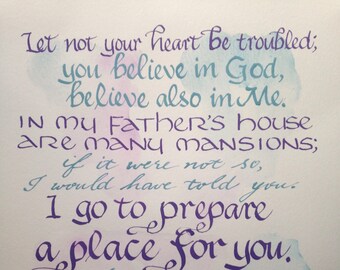 Let not your heart be troubled;
you believe in God,
believe also in Me.
IN MY FATHER'S HOUSE
ARE MANY MANSIONS;
if it were not so,
I would have told you.
I go to prepare
a place for you.